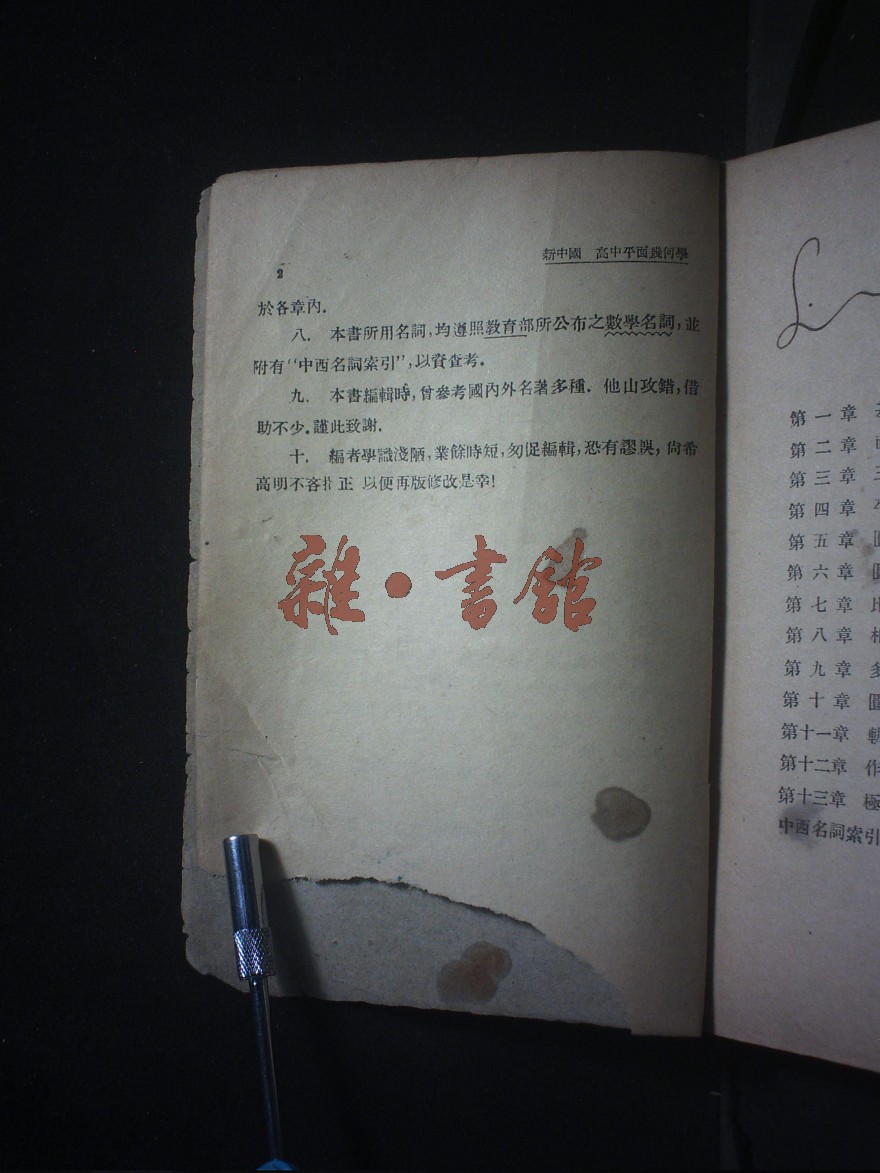 新中國 高中平面幾何學
2
於各章內.
八. 本書所用名詞,均遵照教育部所公布之數學名詞,並
附有"中西名詞索引",以資查考.
九. 本書編輯時,曾參考國內外名著多種. 他山攻錯,借
助不少.謹此致謝.
十. 編者學識淺陋,業餘時短,匆促編輯,恐有謬誤,尚希
高明不吝指正 以便再版修改是幸!
雜·書館
第一章
第二章
第三章
第四章
第五章
第六章
第七章
第八章
第九章
第十章
第十一章
第十二章 作
第十三章 極
中西名詞索引